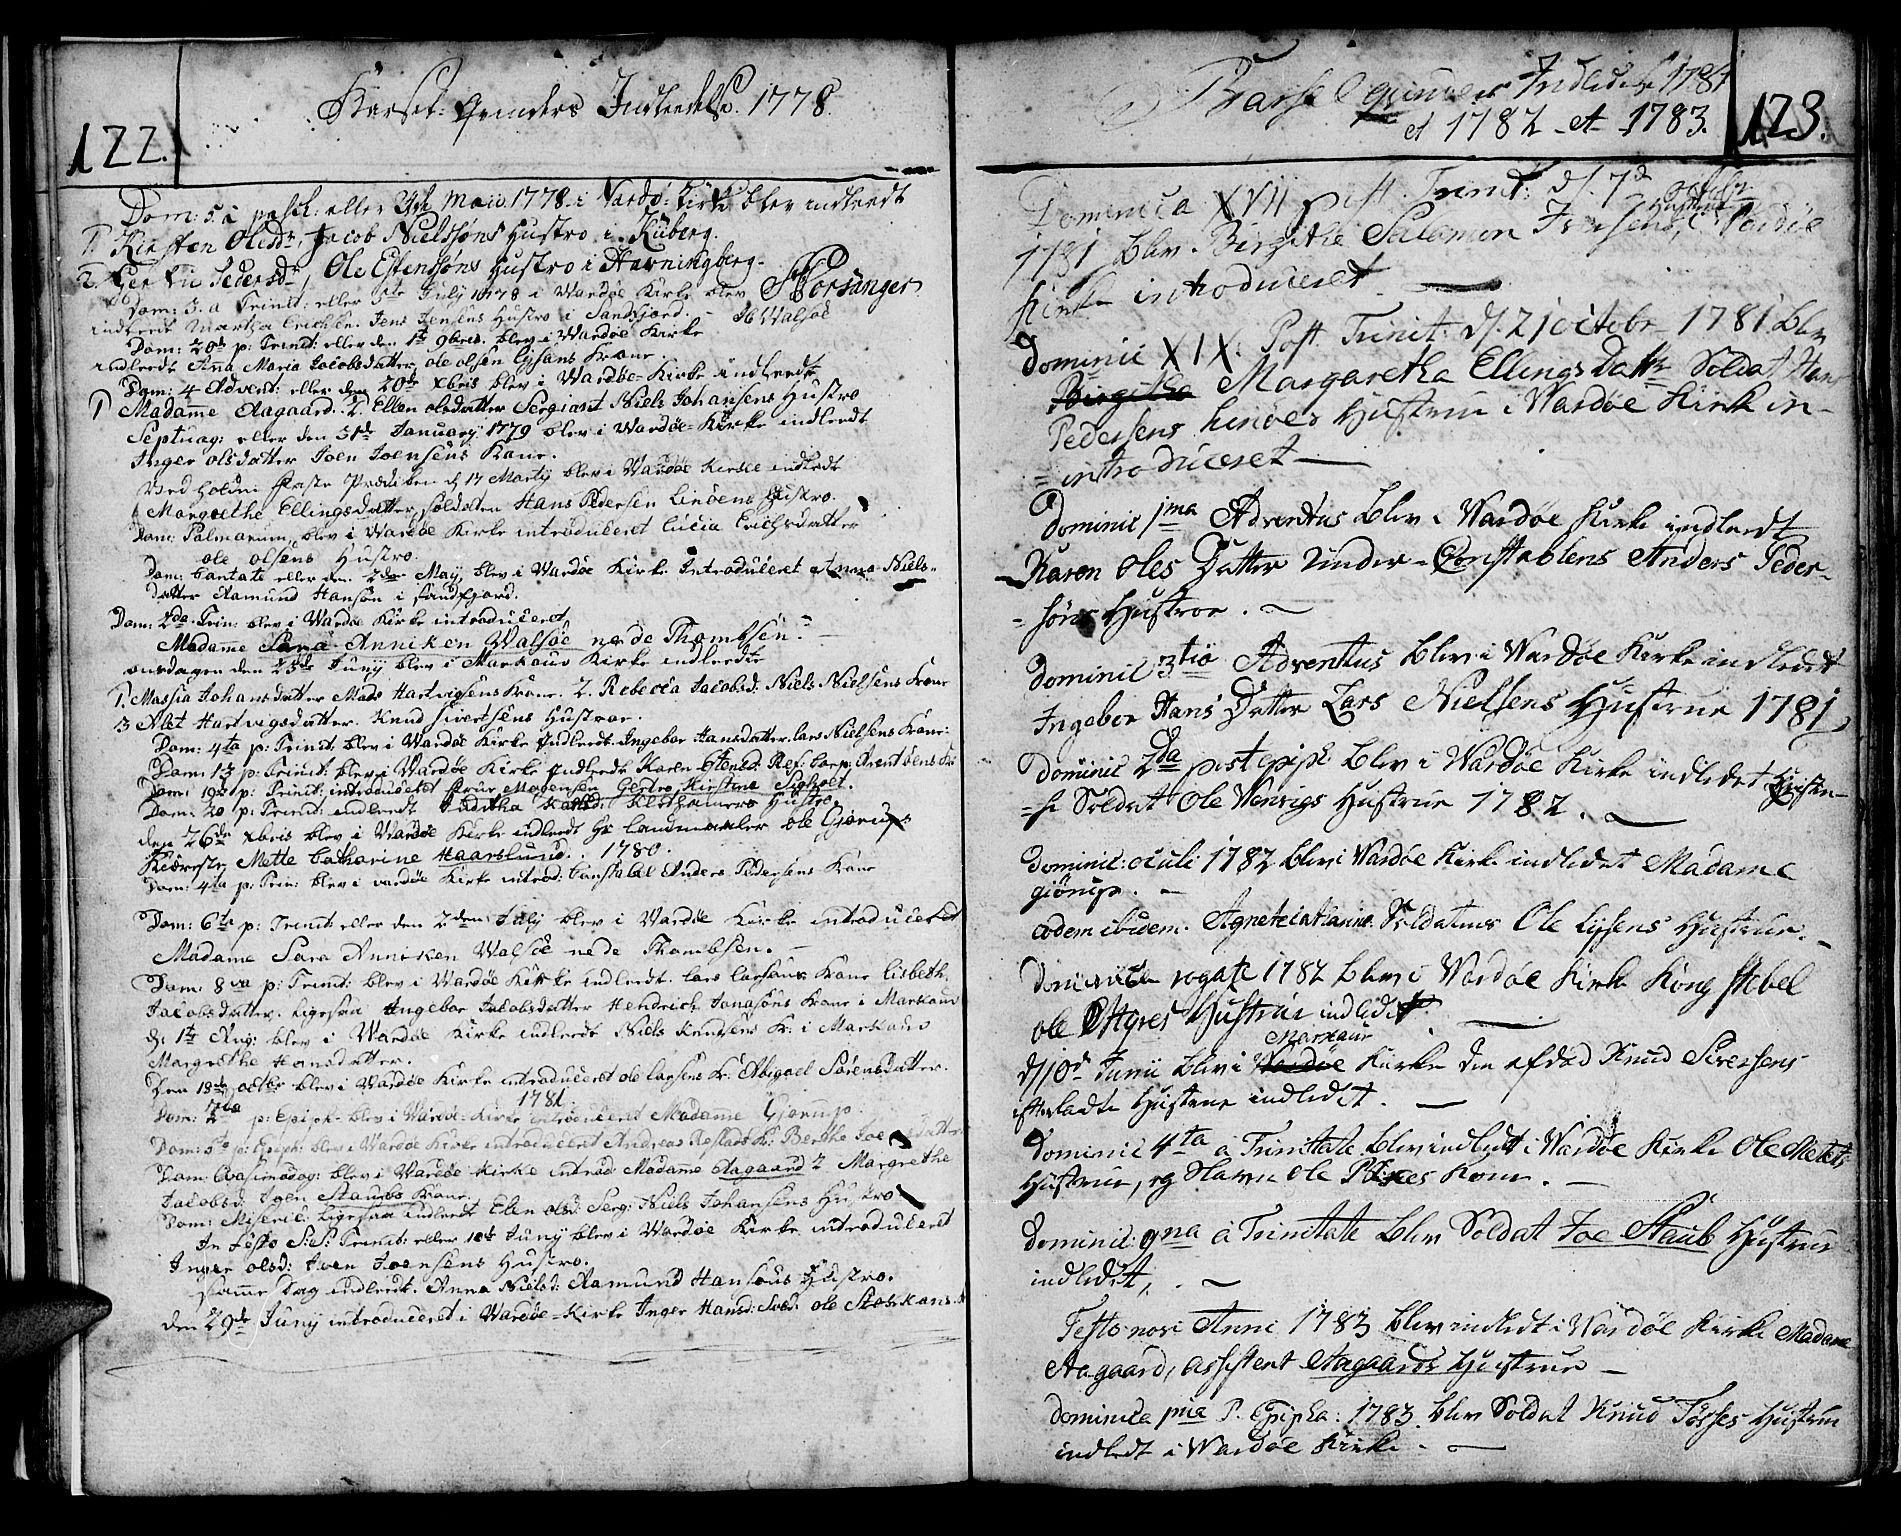 122.
Barsel-Qvinders Indleedelse. 1778.
Dom: 5. à pasch: eller May 1778. i Vardö Kirke blev indleedt
1 Kirsten Olesdr, Jacob Nielssøns Hustro i Kiberg.
2. Pedersdr, Ole Estenssøns Hustro i Havningberg.
Porsanger
Dom: 3. a Trinit: eller 5te July 1778 i Wardøe Kirke blev
indleedt Martha Erichsd. Jens Jensens Hustro i Sandfjord. - Walsøe
Dom: 20de p: Trinit: eller den 1te 9bris. blev i Wardøe Kirke
indleedt Ana Maria Jacobsdatter, ole olsen Lysens Kone.
Dom: 4 Advent: eller den 20de Xbris blev i Wardøe-Kirke indleedt
1 Madame Aagaard. 2. Ellen olsdatter Sergiant Niels Johansens Hustro
Septuag: eller den 31de January 1779 blev i Wardøe-Kirke indleedt
Inger olsdatter Joen Joensens Kone.
Ved holdne første Prædiken d 17 Marty blev i Wardøe Kirke indledt
Margrethe Ellingsdatter, soldaten Hans Pedersen Linöens Hustro.
Dom: Palmarum, blev i Wardøe Kirke introduceret Lucia Erichsdatter
ole olsens Hustro.
Dom: Cantate eller den 2den May, blev i Wardøe Kirke Introduceret Anna Niels-
datter Aamund Hansøn i sandfjord.
Dom: 2da Trin: blev i Wardøe Kirke introduceret
Madame Sara Anniken Walsøe nede Thombsen.
onsdagen den 23de Juny blev i Makaur Kirke indleedte
1. Massia Johansdatter Mads Hartvigsens Kone. 2. Rebecca Jacobsd: Niels Nielsens Kone
3 Abt Hartvigsdatter. Knud sivertsens Hustroe.
Dom: 4ta p: Trinit: blev i Wardøe Kirke Indleedt. Ingebor Hansdatter, lars Nielsens Kone.
Dom: 13 p: Trinit: blev i Wardøe Kirke Indleedt Karen
Dom: 19 p: Trinit: introduceret
Dom: 20 p: Trinit: indleedt Hustro.
den 26de Xbris blev i Wardøe Kirke indleedt Hr Landmaaler ole Gjørups
Kiæreste Mette Catharine Haarslund. 1780.
Dom: 4ta p: Trin: blev i vardøe Kirke introd: Constabel Anders Pedersens Kone
Dom: 6te p: Trinit: eller den 2den July blev i Wardøe Kirke introduceret
Madame Sara Anniken Walsøe nede Thombsen. -
Dom: 8va p: Trinit: blev i Wardøe Kirke indleedt. lars larsens Kone Lisbeth
Jacobsdatter. Ligesaa Ingebor Jacobsdatter Hendrich Jonasøns Kone i Makaur
d: 1te Aug: blev i Wardøe Kirke indleedt Niels Knudsens K: i Makaur
Margrethe Hansdatter.
Den 18de octbr blev i Wardøe Kirke introduceret ole Larsens K: Abigael Sørensdatter.
1781.
Dom: 2da p: Epiph- blev i Wardøe-Kirke introduceret Madame Gjørup.
Dom: 5te p: Epiph: blev i Wardøe Kirke introduceret Andreas K: Berthe datter.
Dom: Qvasimodog: blev i Wardøe Kirke introd Madame Aagaard 2 Margrethe
Jacobsd: Joen Staubs Kone.
Dom: Miseric: ligesaa indleedt Elen olsd: Serg: Niels Johansens Hustro
In Festo S:S: Trinit: eller 10de Juny blev i Wardøe Kirke introduceret
Inger olsd: Joen Joensens Hustro.
samme Dag indleedt. Anna Nielsd: Aamund Hansøns Hustro.
den 29de Juny introduceret i Wardøe-Kirke Inger Hansd:

123.
Barselqvinders Indledelse 1781
et 1782 et 1783.
Dominica XVII post. Trinit: d. 7de octobr
1781 blev Birgithe Salomon Jensens Hustrue i Wardöe
Kirke introduceret.
Dominic XIX. Post. Trinit: d. 21 octobr 1781 blev
Birgithe Margaretha Ellings Datter Soldat Hans
Pedersens Linöes Hustrue i Wardöe Kirke in-
= introduceret
Dominic 1ma Adventus blev i Wardöe Kirke indleedt
Karen Oles Datter Under-Constablens Anders Peder-
= søns Hustroe.
Dominic 3tio Adventus blev i Wardöe Kirke indledet
Ingebor Hans Datter Lars Nielsens Hustrue 1781,
Dominic 2da post epiph blev i Wardöe Kirke indledet
Soldat Ole Hustrue 1782.
Dominic: oculi 1782 blev i Wardöe Kirke indledet Madame
giörup. -
eodem ibidem. Agnetecatharina Soldatens Ole Lysens Hustrue. -
Dominica rogate 1782 blev i Wardöe Kirke
ole Hustrue indledet.
Markaur
d/10de Junii blev i Wardöe Kirke den afdöd Knud Siversens
efterladte Hustrue indledet.
Dominic 4ta a Trinitate blev indledt i Wardöe Kirke Ole
Hustrue, og Ole Kone. -
Dominic: 9na a Trinitate blev Soldat Joe Staub Hustrue
indledet,
Festo novi Anni 1783 blev indledt i Wardöe Kirke Madame
Aagaard, assistent Aagaards Hustrue -
Dominica pma P. Epipha: 1783. blev Soldat Knud Tösses Hustrue
indledt i Wardöe Kirke. -